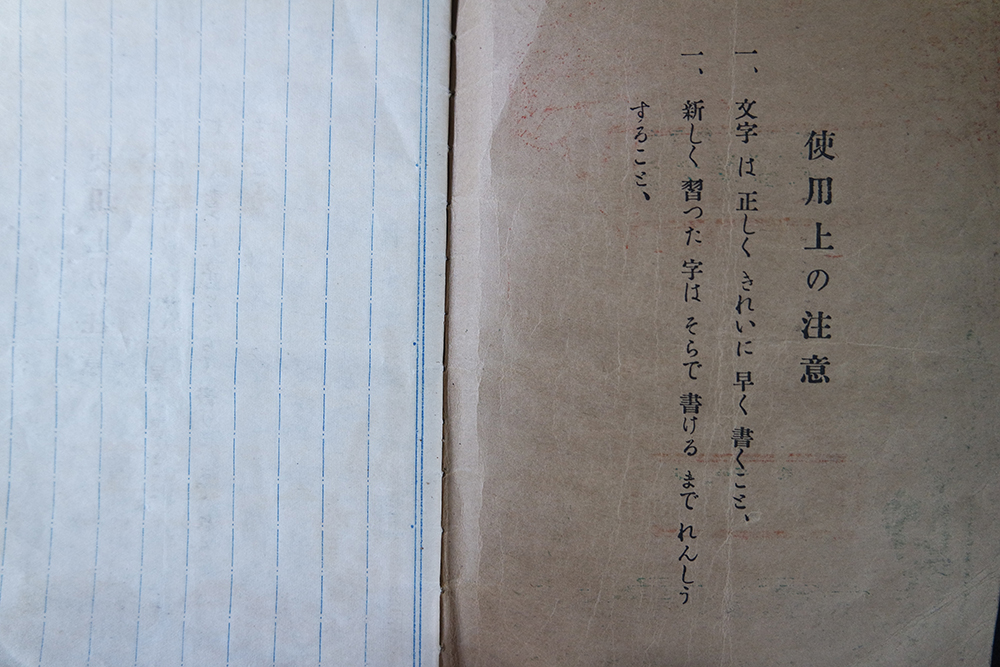 使用上の注意
一、文字は正しくきれいに早く書くこと、
一、新しく習つた字はそらで書けるまでれんしう
すること、